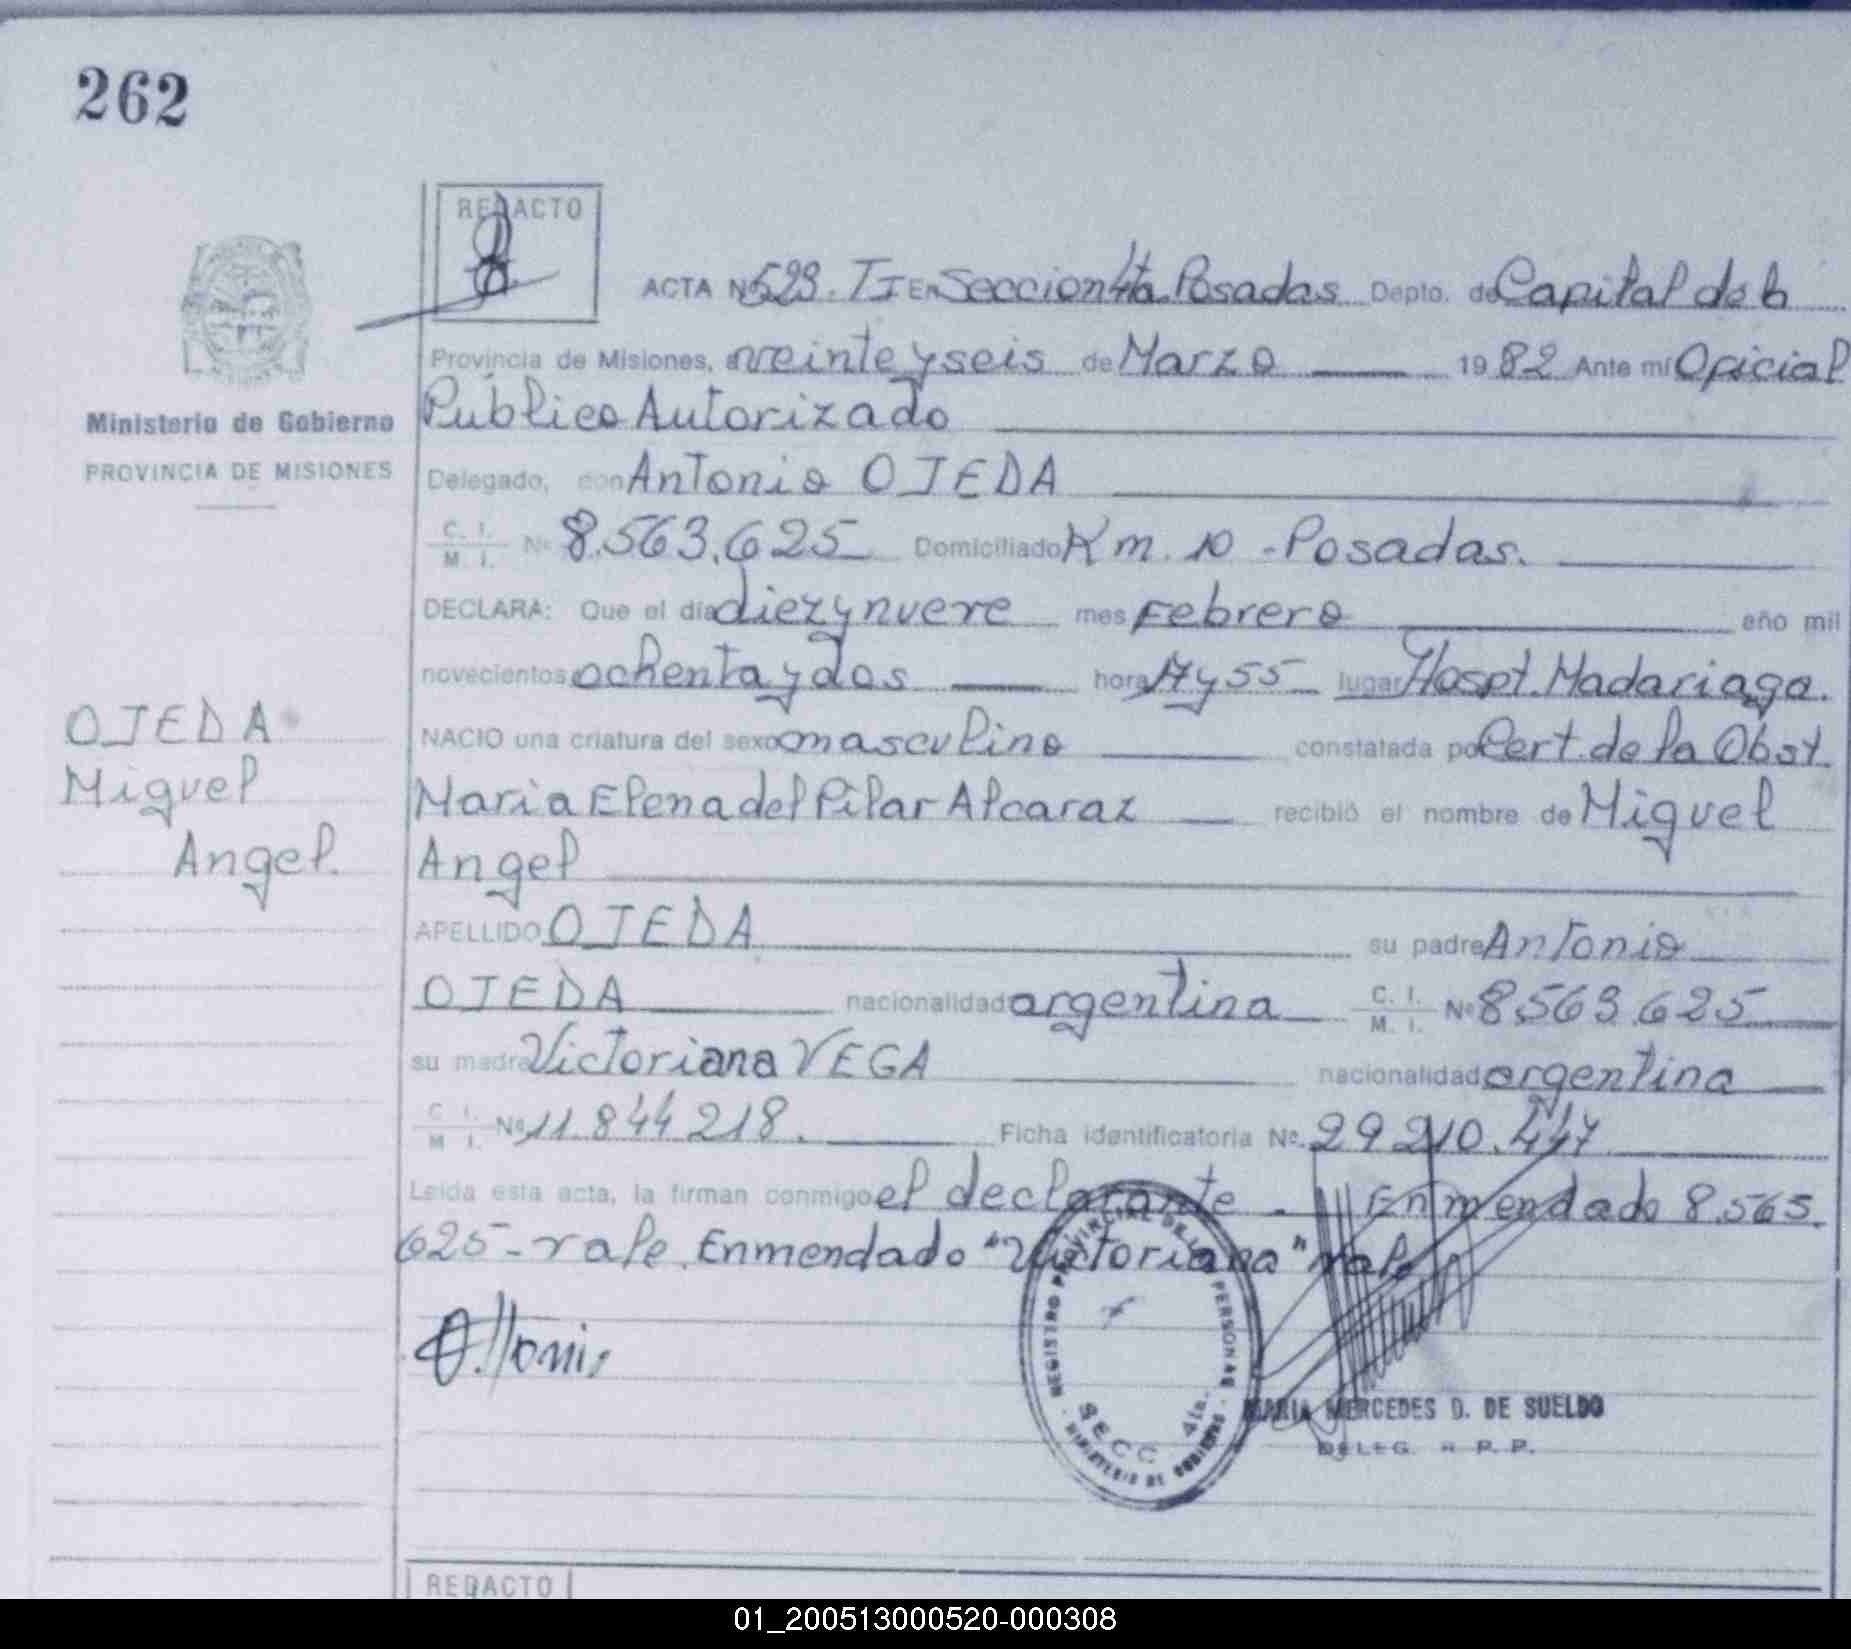 262
REDACTO
ACTA Nº 523. TI EN Seccion 4ta. Posadas Depto. de Capital de la
Provincia de Misiones, a veinte y seis de Marzo 1982 Ante mí Oficial
Ministerio de Gobierno
Público Autorizado
PROVINCIA DE MISIONES
Delegado, don Antonio OJEDA
C. I. M. I. Nº 8.563.625 Domiciliado Km. 10 - Posadas.
DECLARA: Que el día diez y nueve mes Febrero año mil
novecientos ochenta y dos hora 17 y 55 lugar Hospt. Madariaga.
OJEDA
NACIO una criatura del sexo masculino constatada por Cert. de la Obst.
Miguel
Maria Elena del Pilar Alcaraz recibió el nombre de Miguel
Angel.
Angel
APELLIDO OJEDA su padre Antonio
OJEDA nacionalidad argentina C. I. M. I. Nº 8.563.625
su madre Victoriana VEGA nacionalidad argentina
C. I. M. I. Nº 11.844.218. Ficha identificatoria Nº 29.210.447
Leída esta acta, la firman conmigo el declarante. Enmendado 8.565.
625 - vale. Enmendado "Victoriana" vale
REGISTRO PROVINCIAL DE PERSONAS
SECC 4ta.
MINISTERIO DE GOBIERNO
MARIA MERCEDES D. DE SUELDO
DELEG. R P. P.
REDACTO
01_200513000520-000308